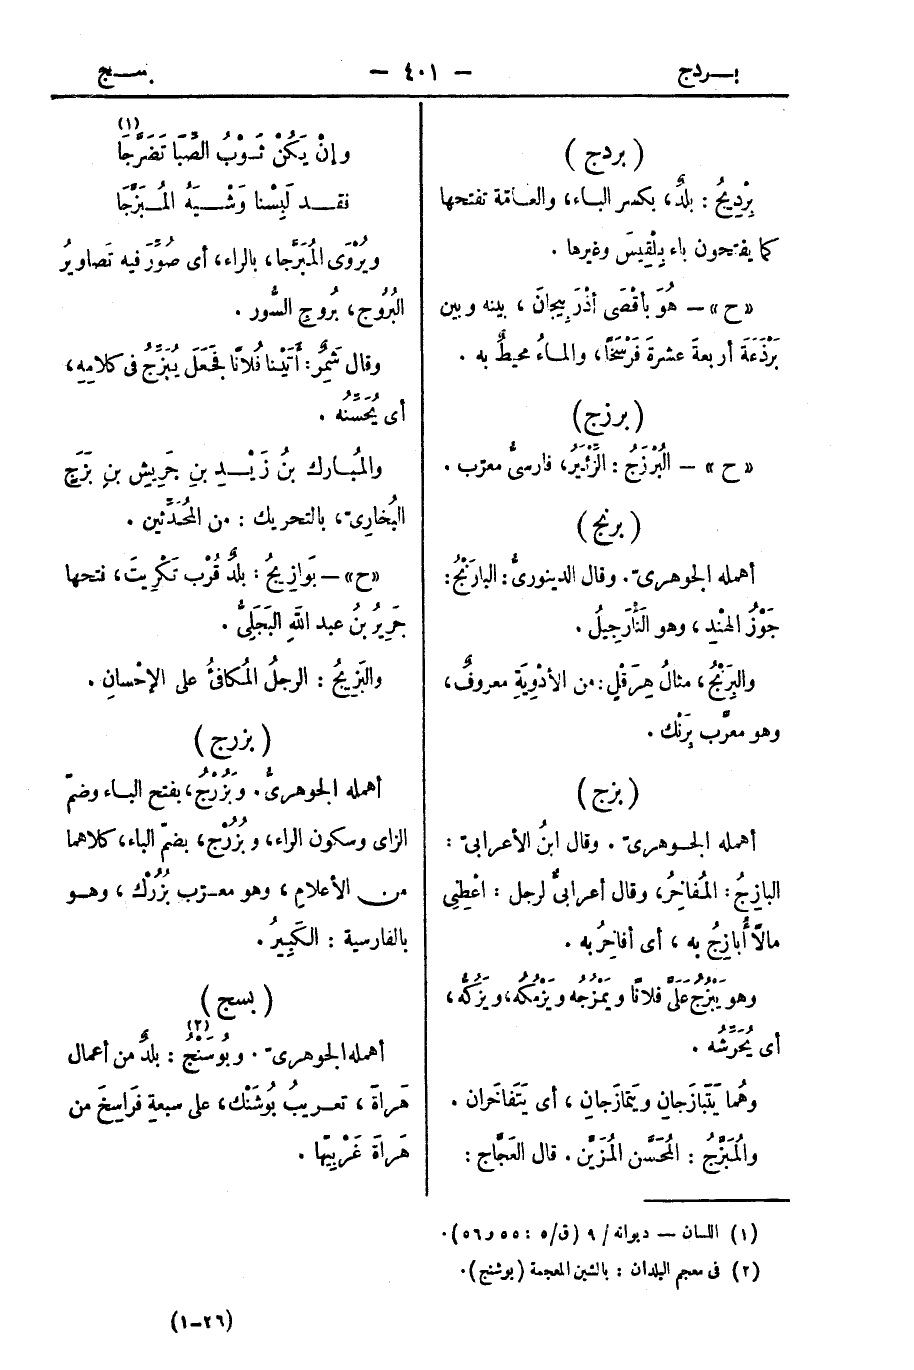 بـردج
– ٤٠١ –
بسـج
( بردج )
بِرْدِيجُ : بلدٌ، بكسر الباء، والعامّة تفتحها
كما يفتحون باء بِلْقِيسَ وغيرها .
«ح» – هُوَ بأقْصَى أَذْرَبِيجانَ ، بينه وبين
بَرْذَعَةَ أربعةَ عشرةَ فَرْسَخًا، والماءُ محيطٌ به .
( برزج )
«ح» – البُرْزَجُ : الزِّئْبَرُ، فارسىٌّ معرّب .
( برنج )
أهمله الجوهرىّ. وقال الدينورىُّ : البارَنْجُ :
جَوْزُ الهِنْدِ ، وهو النَّارَجِيلُ .
والبِرَنْجُ، مثالُ هِرَقْلٍ : من الأدْوِيَةِ معروفٌ،
وهو معرَّب بِرَنْك .
( بزج )
أهمله الجـوهرىّ . وقال ابنُ الأعرابىّ :
البازِجُ : المُفاخِرُ، وقال أعرابىٌّ لرجل : اعْطِنِى
مالاً أُبازِجُ به ، أى أفاخِرُ به .
وهو يَبْزُجُ عَلَىَّ فلانًا ويَمْزُجُه ويَزْمُكُه، ويَزُكُّه،
أى يُحَرِّشُه .
وهُما يَتَبازَجانِ ويَتَمازَجانِ ، أى يَتَفاخَران .
والمُبَزَّجُ : المُحَسَّن المُزَيَّن . قال العَجَّاج :
وإنْ يَكُنْ ثَـوْبُ الصِّبَا تَضَرَّجَا (١)
فقـد لَبِسْنا وَشْـيَهُ المُـبَزَّجَا
ويُرْوَى المُبَرَّجا، بالراء، أى صُوِّرَ فيه تَصاويرُ
البُرُوجِ، بُروجِ السُّور .
وقال شَمِرٌ : أَتَيْنا فُلانًا فجَعَلَ يُبَزِّجُ فى كلامِهِ،
أى يُحَسِّنُه .
والمُبـارك بنُ زَيْـدِ بنِ جَرِيشِ بنِ بَزَجٍ
البُخارِىّ، بالتحريك : من المُحَدِّثين .
«ح» – بَوازِيجُ : بلدٌ قُرْب تَكْرِيتَ، فتحها
جَرِيرُ بنُ عبد اللهِ البَجَلِىُّ .
والبَزِيجُ : الرجلُ المُكافئُ على الإحْسانِ .
( بزرج )
أهمله الجوهرىُّ . وبَزُرْجُ، بفتح البـاء وضمّ
الزاى وسكون الراء، وبُزُرْج، بضمّ الباء، كلاهما
من الأعلامِ ، وهو معـرّب بُزُرْك ، وهـو
بالفارسية : الكَبِيرُ .
( بسج )
أهمله الجوهرىّ . وبُوسَنْجُ (٢) : بلدٌ من أعمال
هَراةَ ، تعـريبُ بُوشَنْك، على سبعةِ فَراسِخَ من
هَراةَ غَرْبِيَّها .
(١) اللسان – ديوانه / ٩ (ق/٥ : ٥٥ و٥٦).
(٢) فى معجم البلدان : بالشين المعجمة (بوشنج).
(٢٦–١)